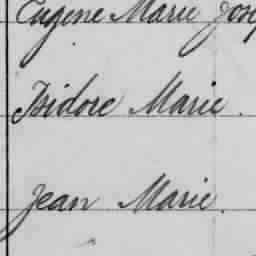 Eugene Marie Jose
Isidore Marie.
Jean Marie.